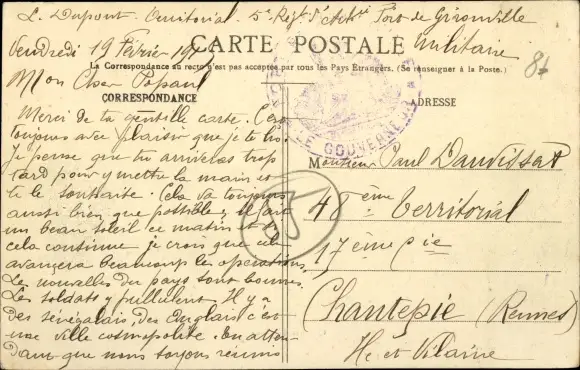 L. Dupont. Territorial. 5e Régt d'Artie Fort de Gironville
Militaire
Vendredi 19 Février 1915
CARTE POSTALE
84
La Correspondance au recto n'est pas acceptée par tous les Pays Etrangers. (Se renseigner à la Poste.)
Mon Cher Popaul
CORRESPONDANCE
ADRESSE
LE GOUVERNEUR
Merci de ta gentille carte. C'est
toujours avec plaisir que je te lis.
Je pense que tu arriveras trop
tard pour y mettre la main et
te le souhaite. Cela va toujours
aussi bien que possible, il fait
un beau soleil ce matin et si
cela continue je crois que cela
avancera beaucoup les opérations.
Les nouvelles du pays sont bonnes.
Les soldats y pullulent. Il y a
des sénégalais, des Anglais, c'est
une ville cosmopolite. En atten-
dant que nous soyons réunis
Monsieur Paul Dauvissat
48ème territorial
17ème Cie
Chantepie (Rennes)
Ile et Vilaine